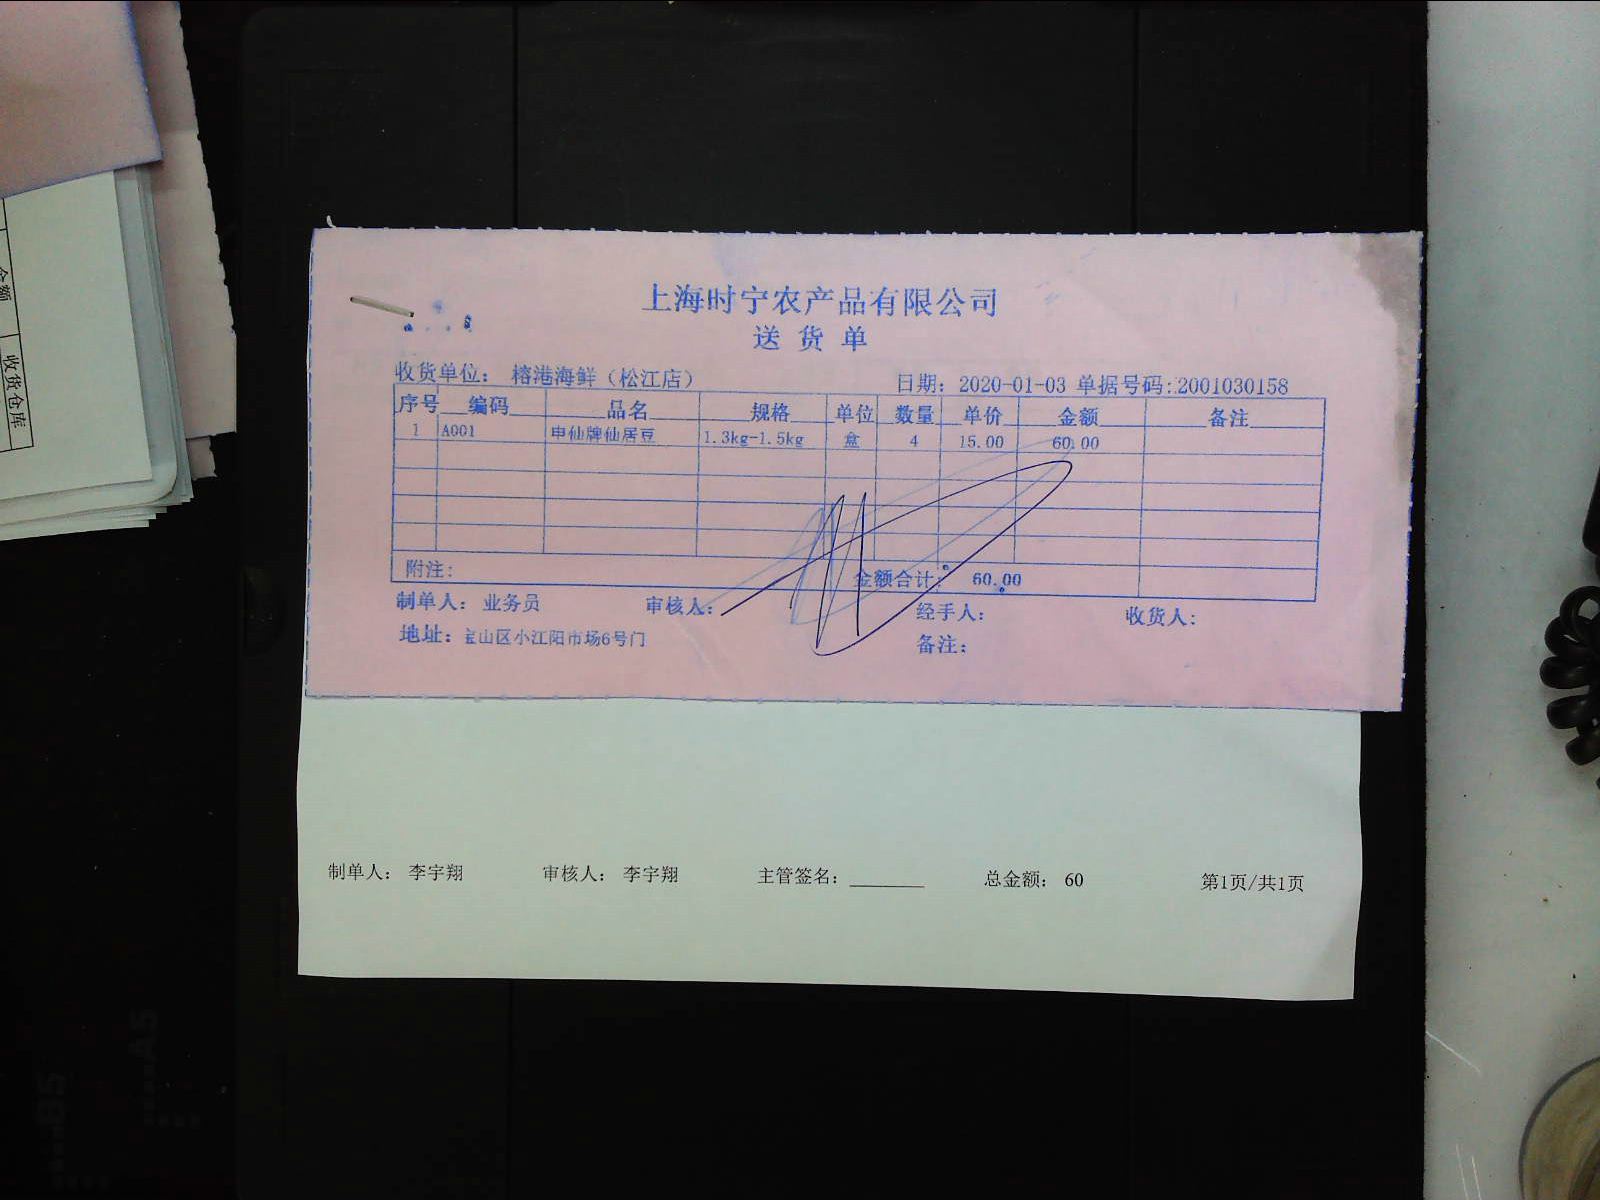 上海时宁农产品有限公司
送 货 单
收货单位： 榕港海鲜（松江店） 日期：2020-01-03 单据号码:2001030158
序号 编码 品名 规格 单位 数量 单价 金额 备注
1 A001 申仙牌仙居豆 1.3kg-1.5kg 盒 4 15.00 60.00
附注: 金额合计: 60.00
制单人：业务员 审核人: 经手人: 收货人:
地址：宝山区小江阳市场6号门 备注:
制单人： 李宇翔 审核人： 李宇翔 主管签名：________ 总金额： 60 第1页/共1页
收货仓库
金额
A5
B5